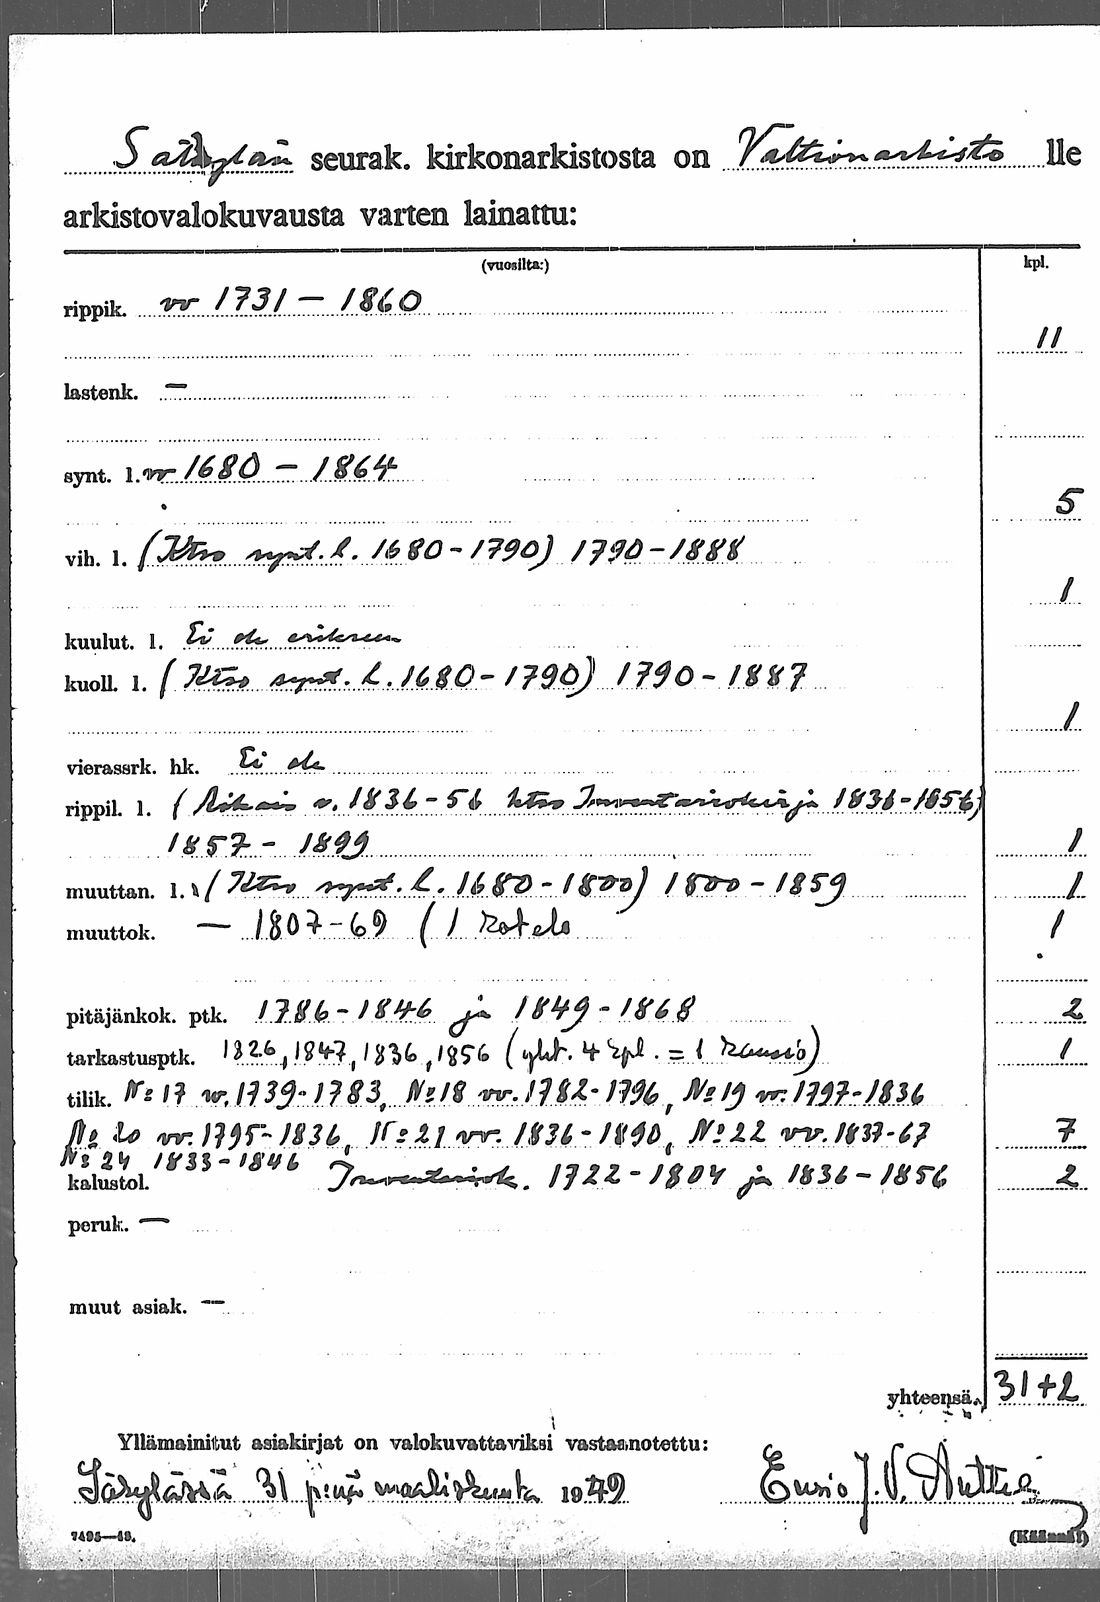 Säkylän seurak. kirkonarkistosta on Valtionarkisto lle
arkistovalokuvausta varten lainattu:
(vuosilta:) kpl.
rippik. vv 1731 – 1860
11
lastenk. –
synt. l. vv 1680 – 1864
5
vih. l. (Ktso synt. l. 1680-1790) 1790-1888
1
kuulut. l. Ei ole erikseen
kuoll. l. (Ktso synt. l. 1680-1790) 1790-1887
1
vierassrk. hk. Ei ole
rippil. l. ( v. 1836-56 ktso Inventariokirja 1836-1856)
1857 - 1899 1
muuttan. l. (Ktso synt. l. 1680-1800) 1800-1859 1
muuttok. — 1807-69 (1 kotelo 1
pitäjänkok. ptk. 1786-1846 ja 1849-1868 2
tarkastusptk. 1826, 1847, 1836, 1856 (yht. 4 kpl. = 1 kansio) 1
tilik. No 17 vv. 1739-1783, No 18 vv. 1782-1796, No 19 vv. 1797-1836
No 20 vv. 1795-1836, No 21 vv. 1836-1890, No 22 vv. 1837-67 7
No 24 1833-1846
kalustol. Inventariok. 1722-1804 ja 1836-1856 2
peruk. —
muut asiak. —
yhteensä 31+2
Yllämainitut asiakirjat on valokuvattaviksi vastaanotettu:
Säkylässä 31 p:nä maaliskuuta 1949 Ensio J. V. Anttila
7495—48. (Käännä!)